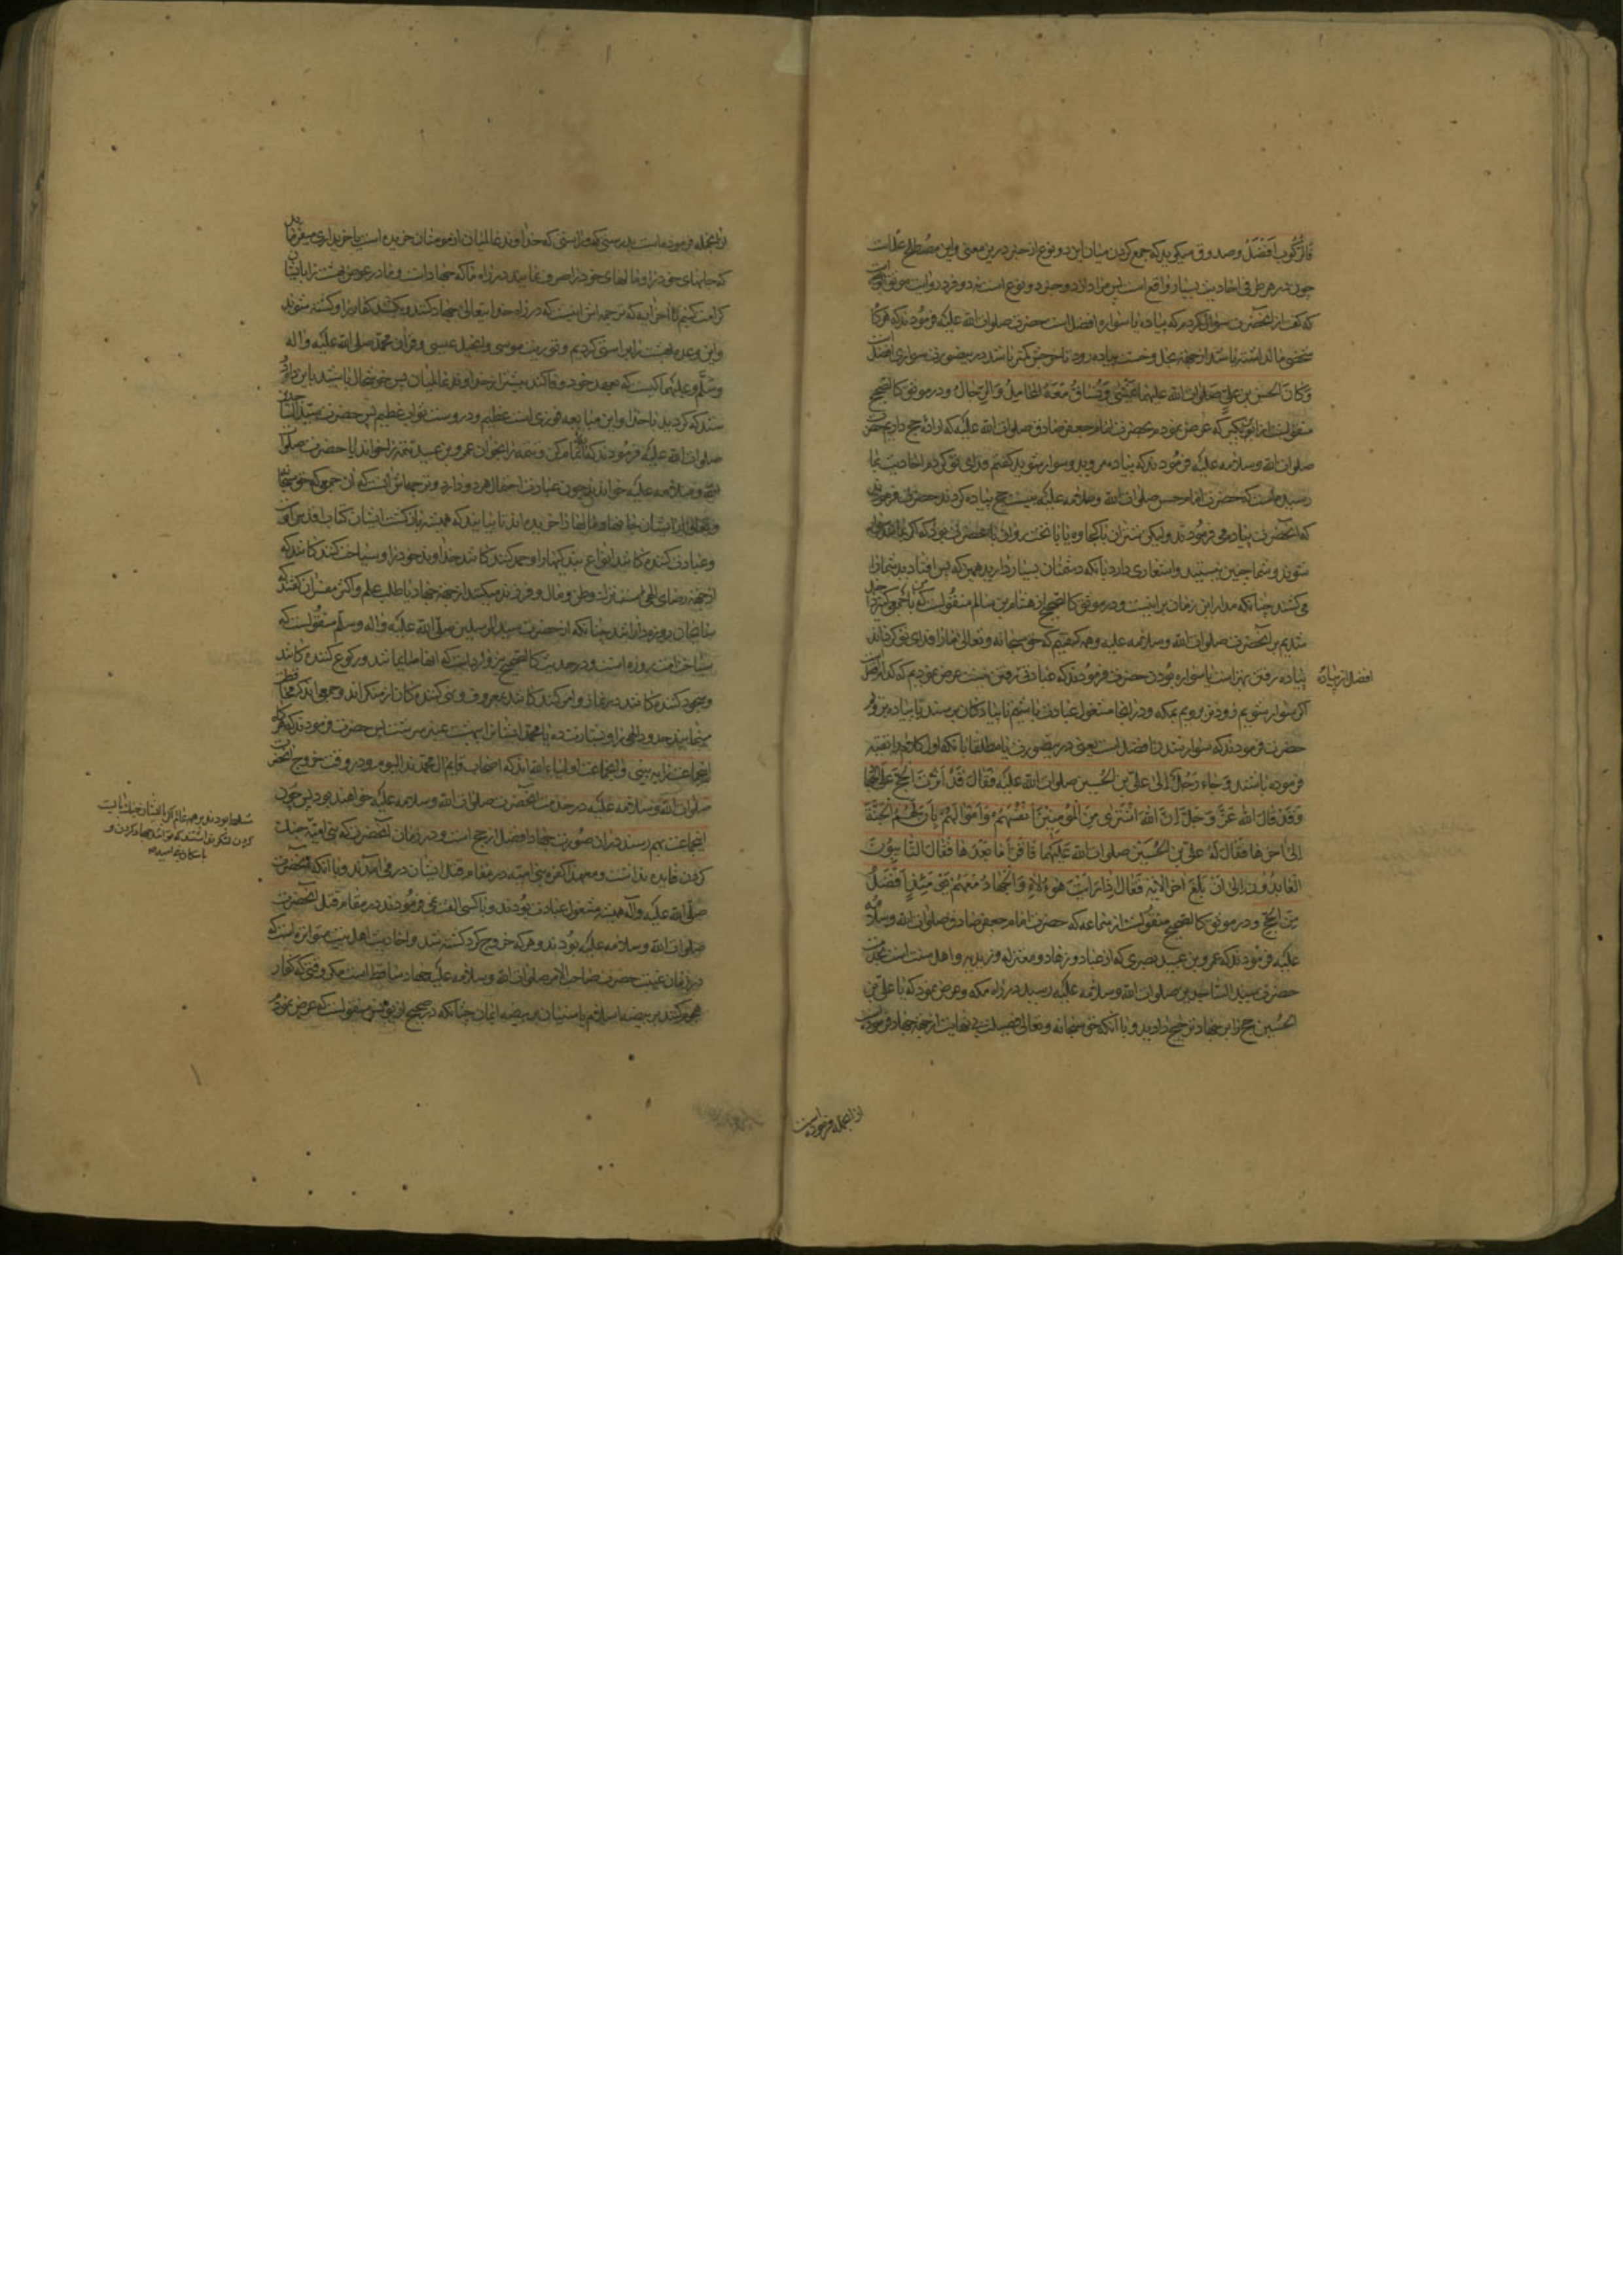 فالرکوب افضل و صدوق میگوید که جمع کردن میان این دو نوع از خبر درین معنی و این مصطلح علماست
چون در هر طرفی احادیث بسیار واقع است پس مراد از دو خبر دو نوع است نه دو فرد
که گفت از آنحضرت سؤال کردم که پیاده یا سواره افضل است حضرت صلوات الله علیه فرمودند که هرگاه
شخصی مالدار باشد از جهة بخل و خست پیاده رود تا خرجش کمتر باشد درین صورت سواری افضل است
وَکانَ الحسن بن علیّ صلوات الله علیهما یمشی وَتُساقُ مَعَهُ المحامِلُ وَالرّحالُ و در موثق کالصحیح
منقولست از ابن بکیر که عرض نمودم بحضرت امام جعفر صادق صلوات الله علیه که اراده حج داریم حضرت
صلوات الله وسلامه علیه فرمودند که پیاده مروید و سوار شوید گفتم فدای تو گردم احادیث بما
رسیده است که حضرت امام حسن صلوات الله وسلامه علیه بیست حج پیاده کردند حضرت فرمودند
که آنحضرت پیاده می فرمودند ولیکن شتران با کجاوه یا با تخت روان با آنحضرت
شوند و شما چنین نیستید و اشعاری دارد بآنکه دشمنان بسیار دارید همین که پس افتادید شما را
می کشند چنانکه مدار این زمان برینست و در موثق کالصحیح از هشام بن سالم منقولست که
شدیم بر آنحضرت صلوات الله وسلامه علیه و همه گفتیم که حق سبحانه وتعالی ما را فدای تو گرداند
پیاده رفتن بهتر است یا سواره بودن حضرت فرمودند که عبادتی نیست عرض نمودیم که کدام افضل است
افضل از پیاده
اگر سوار شویم زودتر رویم بمکه و در آنجا مشغول عبادت باشیم تا پیادگان برسند یا پیاده برویم
حضرت فرمودند که سوار شدن افضلست یعنی درین صورت یا مطلقا با آنکه اول کلام را تقیة
فرموده باشند وجاء رَجُلٌ الی علیّ بن الحسین صلوات الله علیه فقال قَدْ آثَرْتَ الحَجّ علَی الجِهاد
وَقَدْ قالَ الله عَزَّ وَجَلَّ اِنَّ اللهَ اشْتَری مِنَ المُؤمِنینَ اَنْفُسَهُمْ وَاَمْوالَهُمْ بِاَنَّ لَهُمُ الجَنَّةَ
اِلی اخرها فقال لَهُ علیّ بن الحُسَیْن صلوات الله عَلَیْهما فَاقْرَأ ما بَعْدَها فقال التّائِبُونَ
العابِدُونَ اِلی اَنْ بَلَغَ اخِرَ الآیَة فَقال اِذا رَاَیْتَ هؤلاءِ فَالجِهادُ مَعَهُمْ یَوْمَئِذٍ اَفْضَلُ
مِنَ الحَجّ و در موثق کالصحیح منقولست از سماعه که حضرت امام جعفر صادق صلوات الله وسلامه
علیه فرمودند که عمرو بن عبید بصری که از عباد و زهاد و معتزله و زیدیه و اهل سنت است بخدمت
حضرت سید الساجدین صلوات الله وسلامه علیه رسید در راه مکه و عرض نمود که یا علی بن
الحُسین حج را بر جهاد ترجیح دادید و با آنکه حق سبحانه وتعالی فضیلت بی نهایت از جهة جهاد فرموده است
از آنجمله فرموده است
از آنجمله فرموده است بدرستی که و راستی که خداوند عالمیان از مومنان خریده است یا خریداری میفرماید
که جانهای خود را و مالهای خود را صرف نمایند در راه ما که جهاد است و ما در عوض بهشت را بایشان
کرامت کنیم تا آخر آیه که ترجمه اش اینست که در راه خدایتعالی جهاد کنند و بکشند کفار را و کشته شوند
و این وعده بهشت را براستی کردیم و توریت موسی و انجیل عیسی و قرآن محمد صلی الله علیه واله
وسلّم وعلیهما کیست که بعهد خود وفا کننده تر از خداوند عالمیان پس خوشحال باشید باین
که کردید با خدا و این مبایعه فوزی است عظیم و در وست ثواب عظیم پس حضرت سید الساجدین
صلوات الله علیه فرمودند که تمام کن و تتمه را بخوان عمرو بن عبید تتمه را خواند یا حضرت صلوات
الله وسلامه علیه خواندند چون عبارت احتمال هر دو دارد و ترجمه اش اینست که آن جمعی که حق سبحانه
وتعالی از ایشان جانها و مالها را خریده اند تائبانند که همیشه بازگشت ایشان بجناب اقدس اوست
و عبادت کننده کانند بانواع بندگیها و حمد کننده کانند خداوند خود را و سیاحت کننده کانند که
از جهة رضای الهی از وطن و مال و فرزند میکنند از جهة جهاد یا طلب علم و اکثر مفسران گفتند که
سایحان روزه دارانند چنانکه از حضرت سید المرسلین صلی الله علیه واله وسلم منقولست که
سیاحت امت من روزه است و در حدیث کالصحیح نیز وارد است که آنها صایمانند و رکوع کننده کانند
و سجود کننده کانند در نماز و امر کننده کانند بمعروف و نهی کننده کان از منکرند و جمعی اند که محافظت
مینمایند حدود الهی را و بشارت ده یا محمد ایشانرا ببهشت عنبر سرشت پس حضرت فرمودند که هرگاه
این جماعت را به بینی و این جماعت اولیاء الله اند که اصحاب قایم آل محمدند الیوم و در وقت خروج آنحضرت
صلوات الله وسلامه علیه در خدمت آنحضرت صلوات الله وسلامه علیه خواهند بود پس چون
این جماعت بهم رسند در آن صورت جهاد افضل از حج است و در زمان آنحضرت که بنی امیّه جنگ
کردن فایده نداشت و معهذا کفره بنی امیه در مقام قتل ایشان در می آمدند و با آنکه آنحضرت
صلی الله علیه وآله همیشه مشغول عبادت بودند و با کسی الفت نمی فرمودند در مقام قتل آنحضرت
صلوات الله وسلامه علیه بودند و هر که خروج کرد کشته شد و احادیث اهل بیت متواتره است که
در زمان غیبت حضرت صاحب الامر صلوات الله وسلامه علیه جهاد ساقط است مگر وقتی که کفار
هجوم کنند بر بیضه اسلام یا سنیان بر بیضه ایمان چنانکه در صحیح از یونس منقولست که عرض نمودم